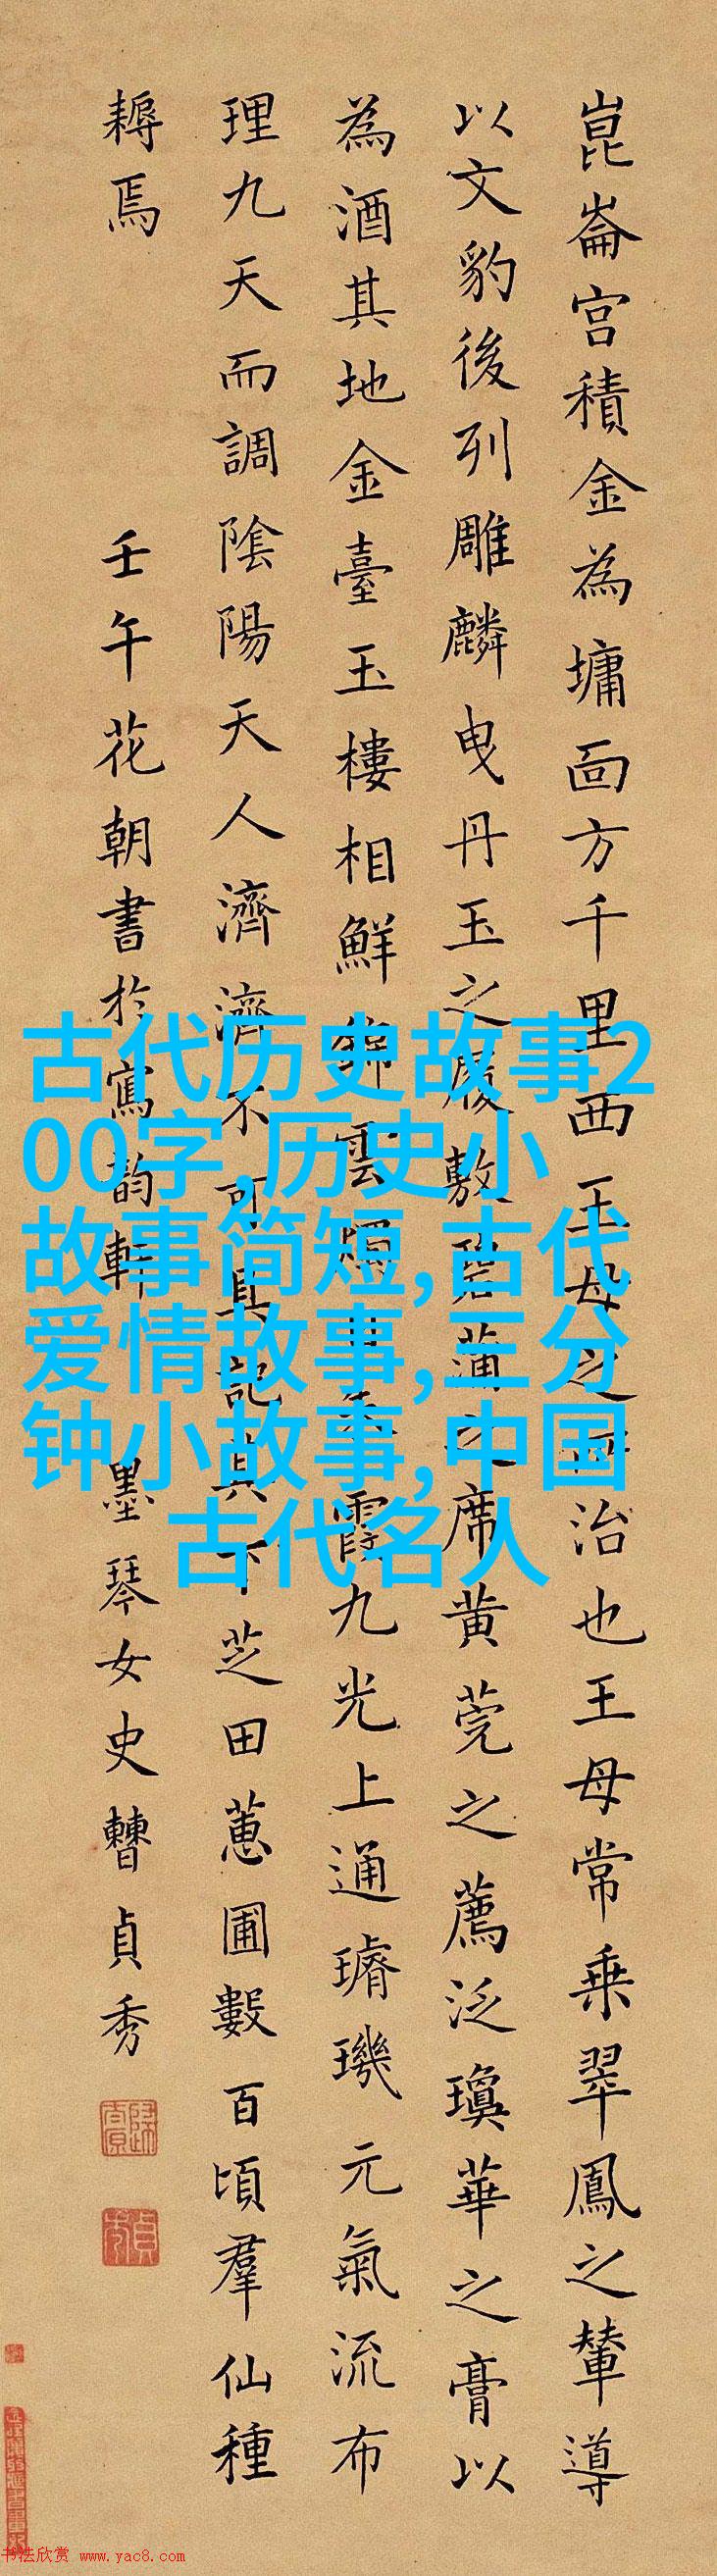 崑崙宫積金為墉面方千里西王母之所治也王母常乗翠鳳之輦導
以文豹後列雕麟曳丹玉之履敷碧蒲之席黄莞之薦泛瓊華之膏以
為酒其地金臺玉樓相鮮錦雲燭日朱霞九光上通璿璣元氣流布
理九天而調陰陽天人濟濟不可具記其下芝田蕙圃數百頃羣仙種
耨焉 壬午花朝書於寫韵軒 墨琴女史曹貞秀
古代历史故事2
00字,历史小
故事简短,古代
爱情故事,三分
钟小故事,中国
古代名人
书法欣赏 www.yac8.com